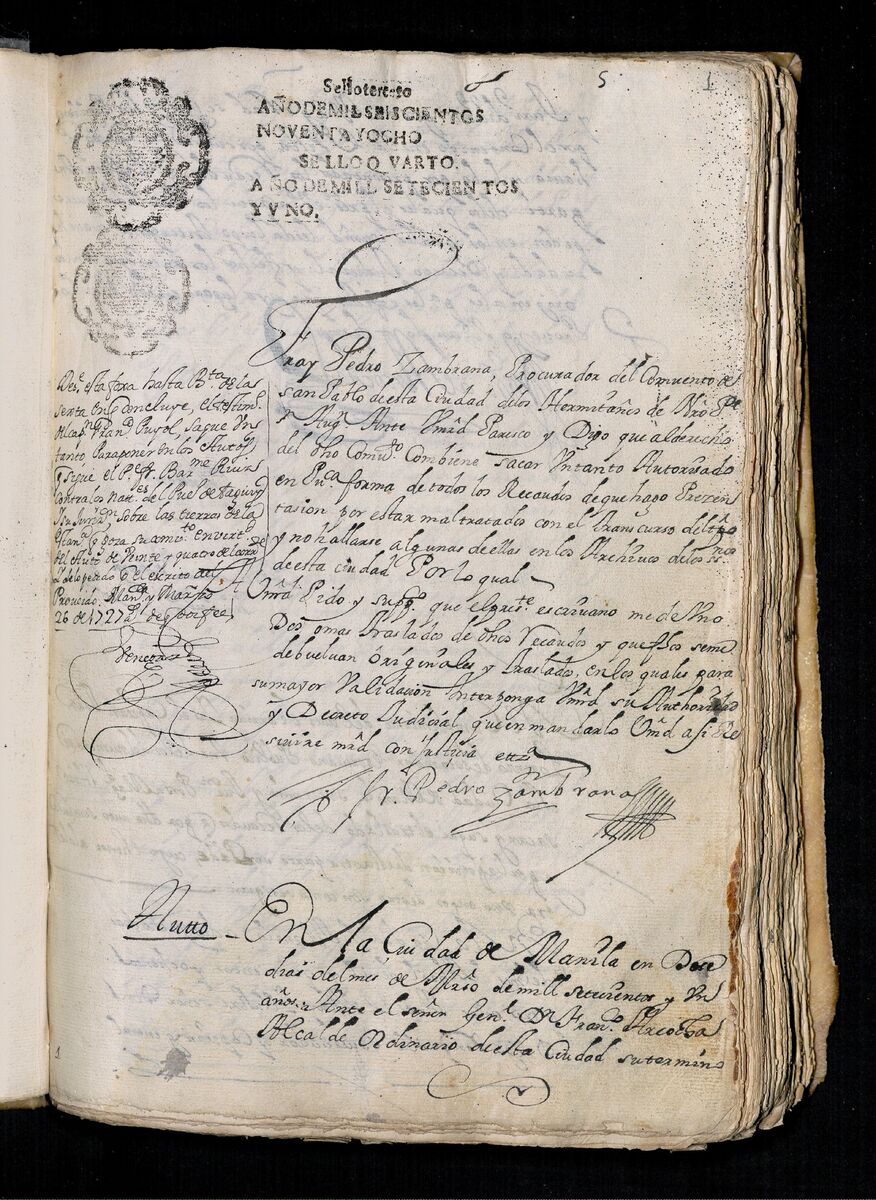 Sello tercero
5
1
AÑO DE MIL SEIS CIENTOS
NOVENTA YOCHO
SELLO QVARTO.
AÑO DE MILL SETECIENTOS
Y V NO.
Fray Pedro Zambrana, Procurador del Comuento de
san Pablo de esta Ciudad delos Hermitaños de Nrõ Pe.
Sn Augn Ante Vmrd Paresco y Digo que alderecho
del dho Comuto Combiene sacar Vntanto Autorisado
en Puca forma de todos los Recaudos de que hago Prezen
tasion por estar mal tratados con el transcurso del tpo
y no hallarse algunas de ellas en los Archiuos de los
de esta ciudad Por lo qual
Vmrd Pido y suppco que el preste escriuano me de Vno
Dos o mas traslados de dhos recaudos y que fhos seme
debueluan originales y traslados, en los quales para
su mayor Validacion Interponga Vmrd su Authoridad
y Decreto Judicial que en mandarlo Vmd assi Re
siuire mrd con justicia etta
Fr. Pedro Zambrana
Desde esta foxa hasta Bta de las
sesenta en q Concluye, el testimo
del capn Frano Puyol, saque Vn
tanto para poner en los Auttos
q sigue el Pe fr. Barme
contra los nates del Puео de taguig
sobre las tierras de la
en virtd
del Auto de Veinte y quatro de
de lo pedido en el escrito
Proueido. Mana y Marzo
26 de 1727 as de q doi fee
Autto
En la Ciudad de Manila en Doze
dias del mes de Mrso de mill setecientos y Vn
años. Ante el señor Genl Dn Frano Atocha
Alcalde Ordinario de esta Ciudad su termino
1